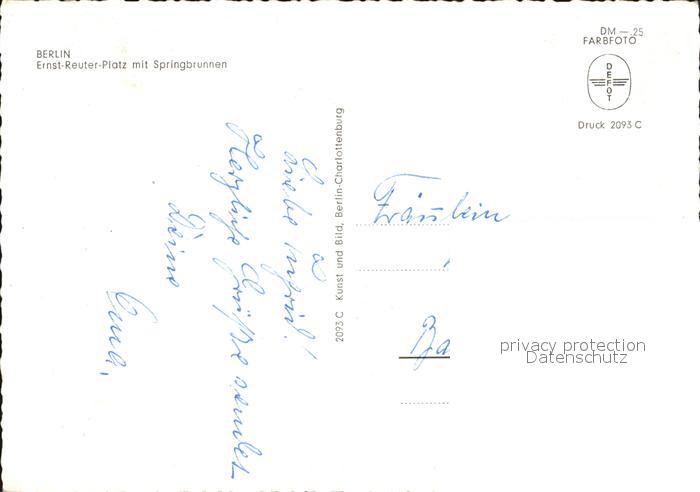 BERLIN
Ernst-Reuter-Platz mit Springbrunnen
DM —.25
FARBFOTO
DEFOT
Druck 2093 C
2093 C Kunst und Bild, Berlin-Charlottenburg
Liebe Ingrid!
Herzliche Grüße sendet
Deine
Oma.
Fräulein
Ba
privacy protection
Datenschutz